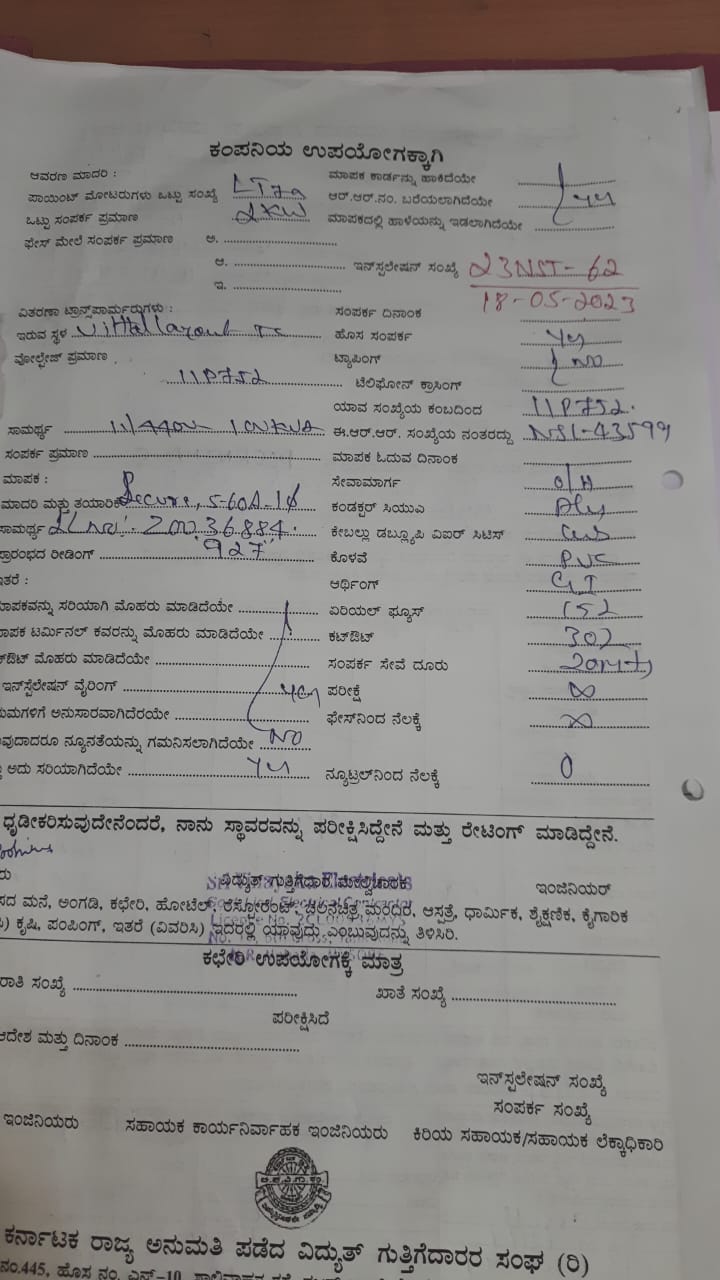 ಕಂಪನಿಯ ಉಪಯೋಗಕ್ಕಾಗಿ
ಆವರಣ ಮಾದರಿ : ಮಾಪಕ ಕಾರ್ಡನ್ನು ಹಾಕಿದೆಯೇ
ಪಾಯಿಂಟ್ ಮೋಟರುಗಳು ಒಟ್ಟು ಸಂಖ್ಯೆ LT7a ಆರ್.ಆರ್.ನಂ. ಬರೆಯಲಾಗಿದೆಯೇ yes
ಒಟ್ಟು ಸಂಪರ್ಕ ಪ್ರಮಾಣ 2KW ಮಾಪಕದಲ್ಲಿ ಹಾಳೆಯನ್ನು ಇಡಲಾಗಿದೆಯೇ
ಫೇಸ್ ಮೇಲೆ ಸಂಪರ್ಕ ಪ್ರಮಾಣ ಅ.
ಆ. ಇನ್‌ಸ್ಟಲೇಷನ್ ಸಂಖ್ಯೆ 23NST-62
ಇ. 18-05-2023
ವಿತರಣಾ ಟ್ರಾನ್ಸ್‌ಪಾರ್ಮರುಗಳು : ಸಂಪರ್ಕ ದಿನಾಂಕ
ಇರುವ ಸ್ಥಳ ಹೊಸ ಸಂಪರ್ಕ Yes
ವೋಲ್ಟೇಜ್ ಪ್ರಮಾಣ ಟ್ಯಾಪಿಂಗ್ NO
11P752 ಟೆಲಿಫೋನ್ ಕ್ರಾಸಿಂಗ್
ಯಾವ ಸಂಖ್ಯೆಯ ಕಂಬದಿಂದ 11P752.
ಸಾಮರ್ಥ್ಯ ಈ.ಆರ್.ಆರ್. ಸಂಖ್ಯೆಯ ನಂತರದ್ದು
ಸಂಪರ್ಕ ಪ್ರಮಾಣ ಮಾಪಕ ಓದುವ ದಿನಾಂಕ
ಮಾಪಕ : ಸೇವಾಮಾರ್ಗ O/H
ಮಾದರಿ ಮತ್ತು ತಯಾರಿಕೆ Secure, 5-60A-1ϕ ಕಂಡಕ್ಟರ್ ಸಿಯುಎ
ಸಾಮರ್ಥ್ಯ ಕೇಬಲ್ಲು ಡಬ್ಲ್ಯೂಪಿ ಎಐರ್ ಸಿಟಿಸ್
ಪ್ರಾರಂಭದ ರೀಡಿಂಗ್ "927" ಕೊಳವೆ PVC
ಇತರೆ : ಆರ್ಥಿಂಗ್ GI
ಮಾಪಕವನ್ನು ಸರಿಯಾಗಿ ಮೊಹರು ಮಾಡಿದೆಯೇ ಏರಿಯಲ್ ಫ್ಯೂಸ್ 152
ಮಾಪಕ ಟರ್ಮಿನಲ್ ಕವರನ್ನು ಮೊಹರು ಮಾಡಿದೆಯೇ ಕಟ್‌ಔಟ್ 302
ಕಟ್‌ಔಟ್ ಮೊಹರು ಮಾಡಿದೆಯೇ ಸಂಪರ್ಕ ಸೇವೆ ದೂರು
ಇನ್‌ಸ್ಟಲೇಷನ್ ವೈರಿಂಗ್ yes ಪರೀಕ್ಷೆ ∞
ನಿಯಮಗಳಿಗೆ ಅನುಸಾರವಾಗಿದೆರಯೇ ಫೇಸ್‌ನಿಂದ ನೆಲಕ್ಕೆ ∞
ಯಾವುದಾದರೂ ನ್ಯೂನತೆಯನ್ನು ಗಮನಿಸಲಾಗಿದೆಯೇ NO
ಅದು ಸರಿಯಾಗಿದೆಯೇ Yes ನ್ಯೂಟ್ರಲ್‌ನಿಂದ ನೆಲಕ್ಕೆ 0
ಧೃಡೀಕರಿಸುವುದೇನೆಂದರೆ, ನಾನು ಸ್ಥಾವರವನ್ನು ಪರೀಕ್ಷಿಸಿದ್ದೇನೆ ಮತ್ತು ರೇಟಿಂಗ್ ಮಾಡಿದ್ದೇನೆ.
ವಿದ್ಯುತ್ ಗುತ್ತಿಗೆದಾರ ಮೇಲ್ವಿಚಾರಕ ಇಂಜಿನಿಯರ್
ಮನೆ, ಅಂಗಡಿ, ಕಛೇರಿ, ಹೋಟೆಲ್, ರೆಸ್ಟೋರೆಂಟ್, ಚಲನಚಿತ್ರ ಮಂದಿರ, ಆಸ್ಪತ್ರೆ, ಧಾರ್ಮಿಕ, ಶೈಕ್ಷಣಿಕ, ಕೈಗಾರಿಕ
ಕೃಷಿ, ಪಂಪಿಂಗ್, ಇತರೆ (ವಿವರಿಸಿ) ಇದರಲ್ಲಿ ಯಾವುದು ಎಂಬುವುದನ್ನು ತಿಳಿಸಿರಿ.
ಕಛೇರಿ ಉಪಯೋಗಕ್ಕೆ ಮಾತ್ರ
ಸಂಖ್ಯೆ ಖಾತೆ ಸಂಖ್ಯೆ
ಪರೀಕ್ಷಿಸಿದೆ
ಆದೇಶ ಮತ್ತು ದಿನಾಂಕ
ಇನ್‌ಸ್ಟಲೇಷನ್ ಸಂಖ್ಯೆ
ಸಂಪರ್ಕ ಸಂಖ್ಯೆ
ಇಂಜಿನಿಯರು ಸಹಾಯಕ ಕಾರ್ಯನಿರ್ವಾಹಕ ಇಂಜಿನಿಯರು ಕಿರಿಯ ಸಹಾಯಕ/ಸಹಾಯಕ ಲೆಕ್ಕಾಧಿಕಾರಿ
ಕರ್ನಾಟಕ ರಾಜ್ಯ ಅನುಮತಿ ಪಡೆದ ವಿದ್ಯುತ್ ಗುತ್ತಿಗೆದಾರರ ಸಂಘ (ರಿ)
ನಂ.445, ಹೊಸ ನಂ. ಎನ್-10,